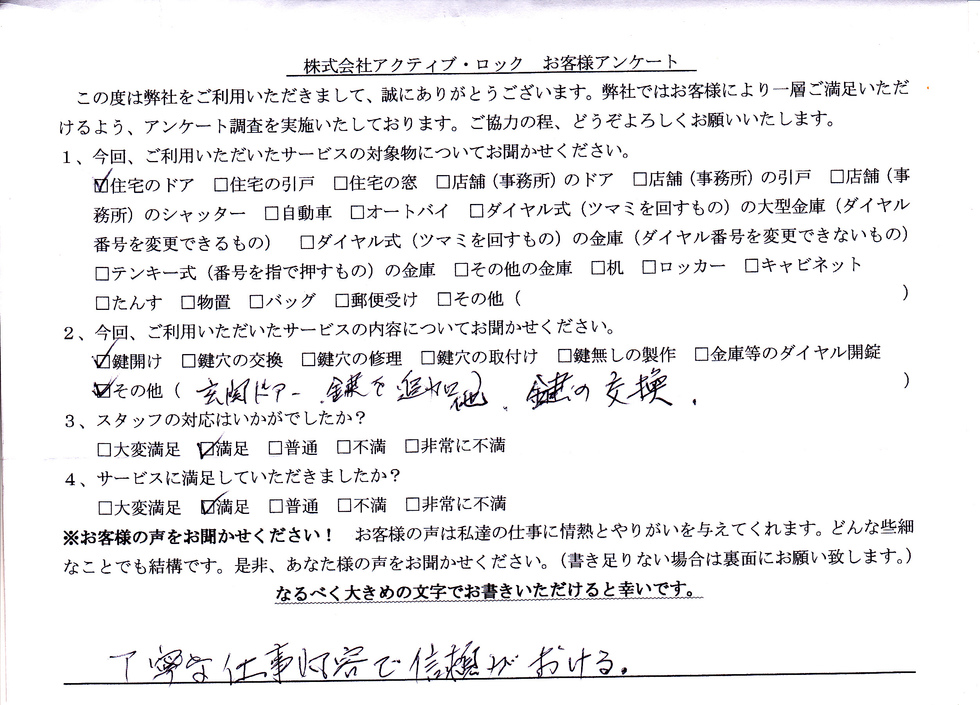 株式会社アクティブ・ロック　お客様アンケート
この度は弊社をご利用いただきまして、誠にありがとうございます。弊社ではお客様により一層ご満足いただ
けるよう、アンケート調査を実施いたしております。ご協力の程、どうぞよろしくお願いいたします。
1、今回、ご利用いただいたサービスの対象物についてお聞かせください。
☑住宅のドア　□住宅の引戸　□住宅の窓　□店舗（事務所）のドア　□店舗（事務所）の引戸　□店舗（事
務所）のシャッター　□自動車　□オートバイ　□ダイヤル式（ツマミを回すもの）の大型金庫（ダイヤル
番号を変更できるもの）　□ダイヤル式（ツマミを回すもの）の金庫（ダイヤル番号を変更できないもの）
□テンキー式（番号を指で押すもの）の金庫　□その他の金庫　□机　□ロッカー　□キャビネット
□たんす　□物置　□バッグ　□郵便受け　□その他（　　　）
2、今回、ご利用いただいたサービスの内容についてお聞かせください。
☑鍵開け　□鍵穴の交換　□鍵穴の修理　□鍵穴の取付け　□鍵無しの製作　□金庫等のダイヤル開錠
☑その他（玄関ドアー 鍵を追加 他、鍵の交換.）
3、スタッフの対応はいかがでしたか？
□大変満足　☑満足　□普通　□不満　□非常に不満
4、サービスに満足していただきましたか？
□大変満足　☑満足　□普通　□不満　□非常に不満
※お客様の声をお聞かせください！　お客様の声は私達の仕事に情熱とやりがいを与えてくれます。どんな些細
なことでも結構です。是非、あなた様の声をお聞かせください。（書き足りない場合は裏面にお願い致します。）
なるべく大きめの文字でお書きいただけると幸いです。
丁寧な仕事内容で信頼がおける。